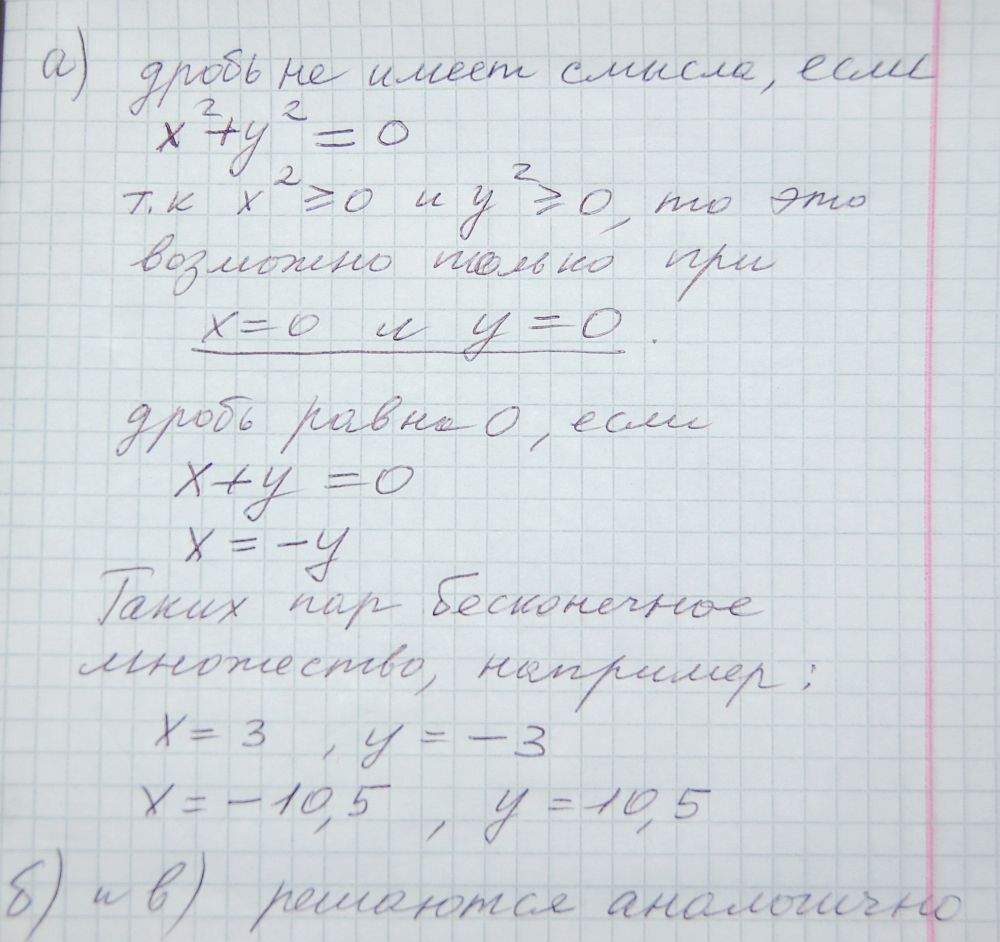 а) дробь не имеет смысла, если
x²+y² = 0
т.к x² ⩾ 0 и y² ⩾ 0, то это
возможно только при
x = 0 и y = 0.
дробь равна 0, если
x+y = 0
x = -y
Таких пар бесконечное
множество, например:
x = 3, y = -3
x = -10,5, y = 10,5
б) и в) решаются аналогично